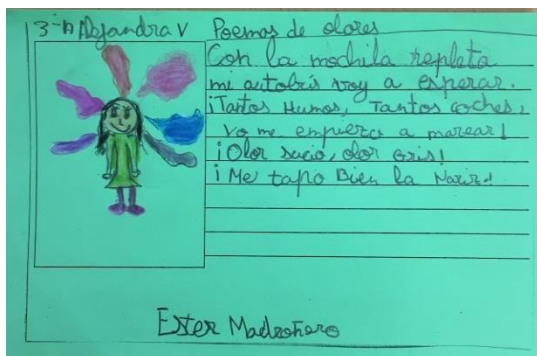 3-A Alejandra V
Poemas de olores
Con la mochila repleta
mi autobús voy a esperar.
¡Tantos Humos, Tantos coches,
yo me empiezo a marear!
¡Olor sucio, olor Gris!
¡Me tapo Bien la Nariz!
Ester Madroñero